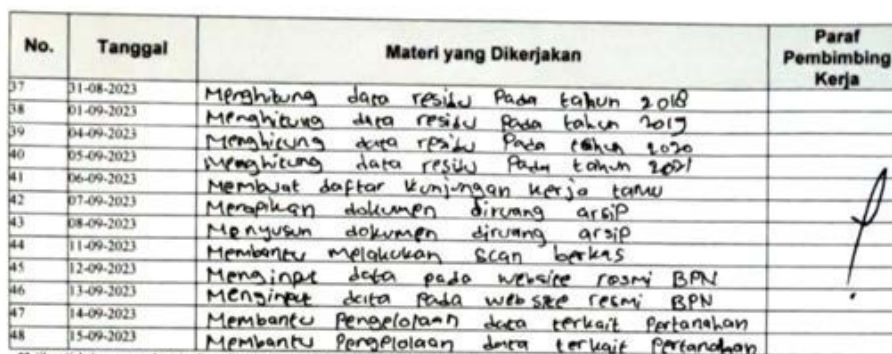 No. Tanggal Materi yang Dikerjakan Paraf Pembimbing Kerja
37 31-08-2023 Menghitung data residu Pada tahun 2018
38 01-09-2023 Menghitung data residu Pada tahun 2019
39 04-09-2023 Menghitung data residu Pada tahun 2020
40 05-09-2023 Menghitung data residu Pada tahun 2021
41 06-09-2023 Membuat daftar kunjungan kerja tamu
42 07-09-2023 Merapikan dokumen diruang arsip
43 08-09-2023 Menyusun dokumen diruang arsip
44 11-09-2023 Membantu melakukan scan berkas
45 12-09-2023 Menginput data pada website resmi BPN
46 13-09-2023 Menginput data Pada website resmi BPN
47 14-09-2023 Membantu Pengelolaan data terkait Pertanahan
48 15-09-2023 Membantu Pengelolaan data terkait Pertanahan